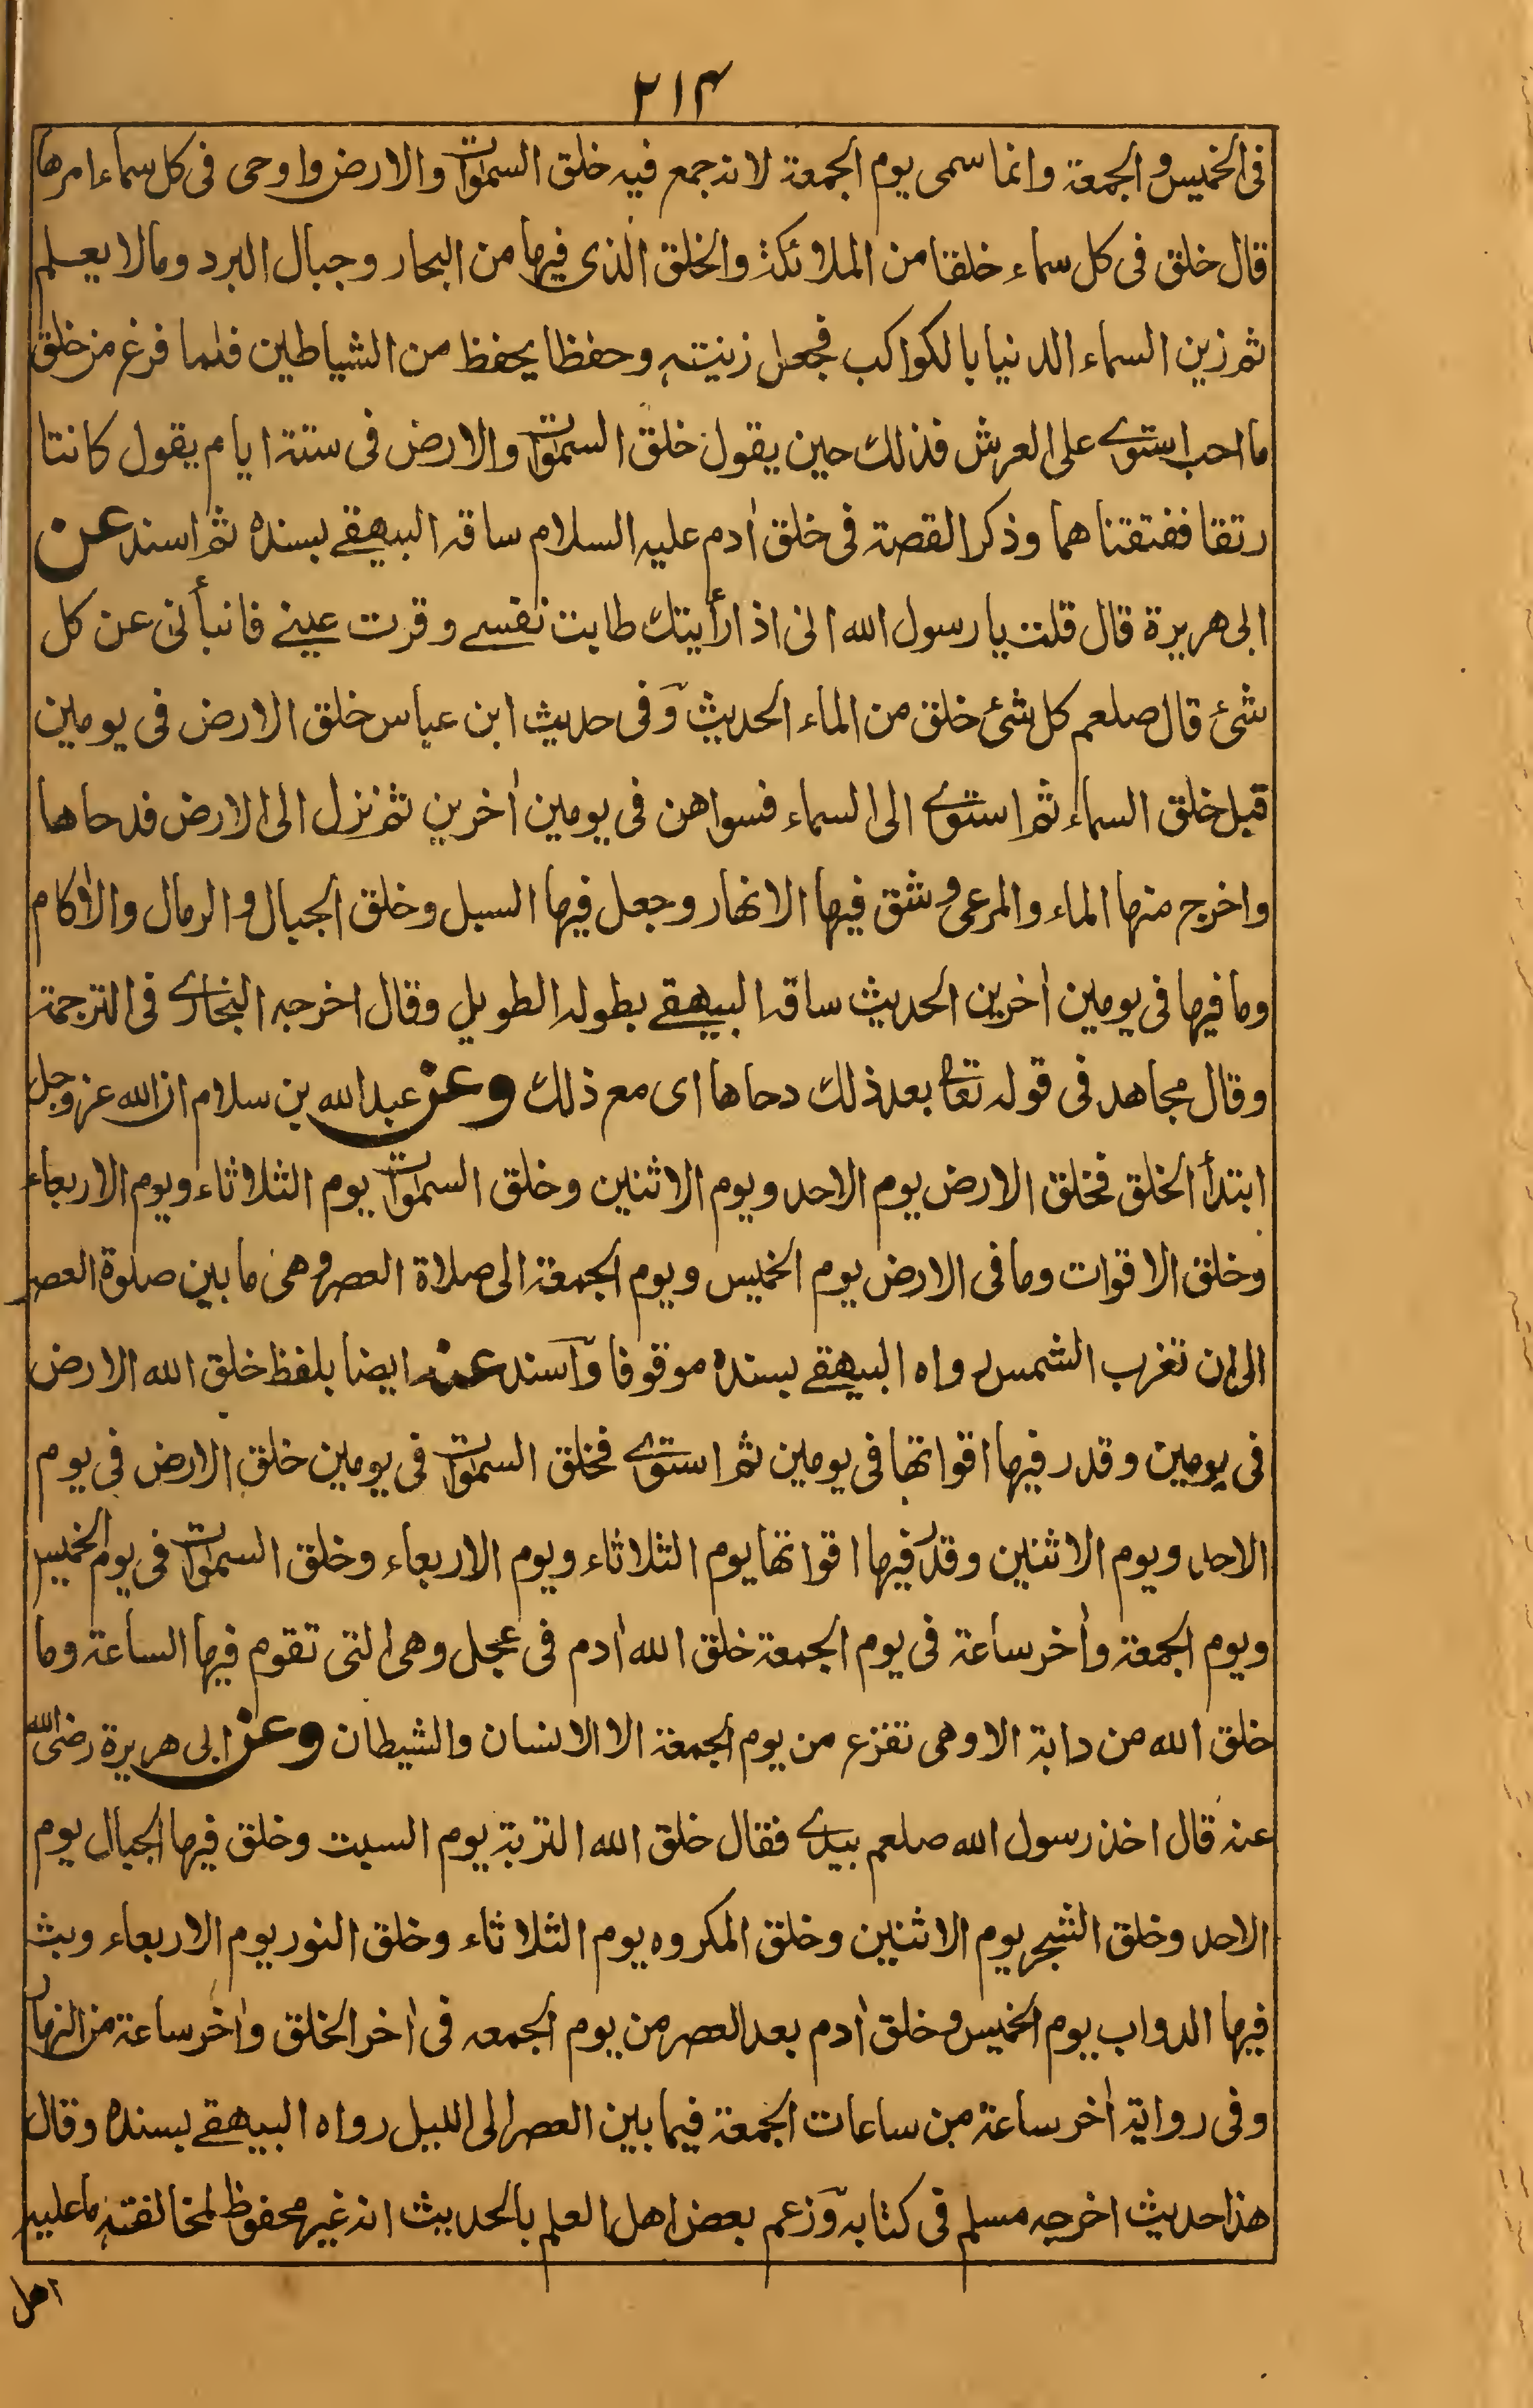 ٢١٤
فى الخميس والجمعة وانما سمى يوم الجمعة لانه جمع فيه خلق السموات والارض واوحى فى كل سماء امرها
قال خلق فى كل سماء خلقا من الملائكة والخلق الذى فيها من البحار وجبال البرد ومالا يعلم
ثم زين السماء الدنيا بالكواكب فجعل زينته وحفظا يحفظ من الشياطين فلما فرغ من خلق
ما احب استوى على العرش فذلك حين يقول خلق السموات والارض فى ستة ايام يقول كانتا
رتقا ففتقناهما وذكر القصة فى خلق اٰدم عليه السلام ساقه البيهقے بسنده ثم اسند عن
ابى هريرة قال قلت يا رسول الله انى اذا رأيتك طابت نفسے وقرت عينے فانبأنى عن كل
شئ قال صلعم كل شئ خلق من الماء الحديث وفى حديث ابن عباس خلق الارض فى يومين
قبل خلق السماء ثم استوى الى السماء فسواهن فى يومين اٰخرين ثم نزل الى الارض فدحاها
واخرج منها الماء والمرعى وشق فيها الانهار وجعل فيها السبل وخلق الجبال والرمال والاٰكام
وما فيها فى يومين اٰخرين الحديث ساقه البيهقے بطوله الطويل وقال اخرجه البخارى فى الترجمة
وقال مجاهد فى قوله تعالى بعد ذلك دحاها اى مع ذلك وعن عبد الله بن سلام ان الله عز وجل
ابتدأ الخلق فخلق الارض يوم الاحد ويوم الاثنين وخلق السموات يوم الثلاثاء ويوم الاربعاء
وخلق الاقوات وما فى الارض يوم الخميس ويوم الجمعة الى صلاة العصر وهى ما بين صلوة العصر
الى ان تغرب الشمس رواه البيهقے بسنده موقوفا واسند عنه ايضا بلفظ خلق الله الارض
فى يومين وقدر فيها اقواتها فى يومين ثم استوى فخلق السموات فى يومين خلق الارض فى يوم
الاحد ويوم الاثنين وقدر فيها اقواتها يوم الثلاثاء ويوم الاربعاء وخلق السموات فى يوم الخميس
ويوم الجمعة واٰخر ساعة فى يوم الجمعة خلق الله اٰدم فى عجل وهى التى تقوم فيها الساعة وما
خلق الله من دابة الا وهى تفزع من يوم الجمعة الا الانسان والشيطان وعن ابى هريرة رضى الله
عنه قال اخذ رسول الله صلعم بيدى فقال خلق الله التربة يوم السبت وخلق فيها الجبال يوم
الاحد وخلق الشجر يوم الاثنين وخلق المكروه يوم الثلاثاء وخلق النور يوم الاربعاء وبث
فيها الدواب يوم الخميس وخلق اٰدم بعد العصر من يوم الجمعه فى اٰخر الخلق واٰخر ساعة من النهار
وفى رواية اٰخر ساعة من ساعات الجمعة فيما بين العصر الى الليل رواه البيهقے بسنده وقال
هذا حديث اخرجه مسلم فى كتابه وزعم بعض اهل العلم بالحديث انه غير محفوظ لمخالفته ما عليه
اهل